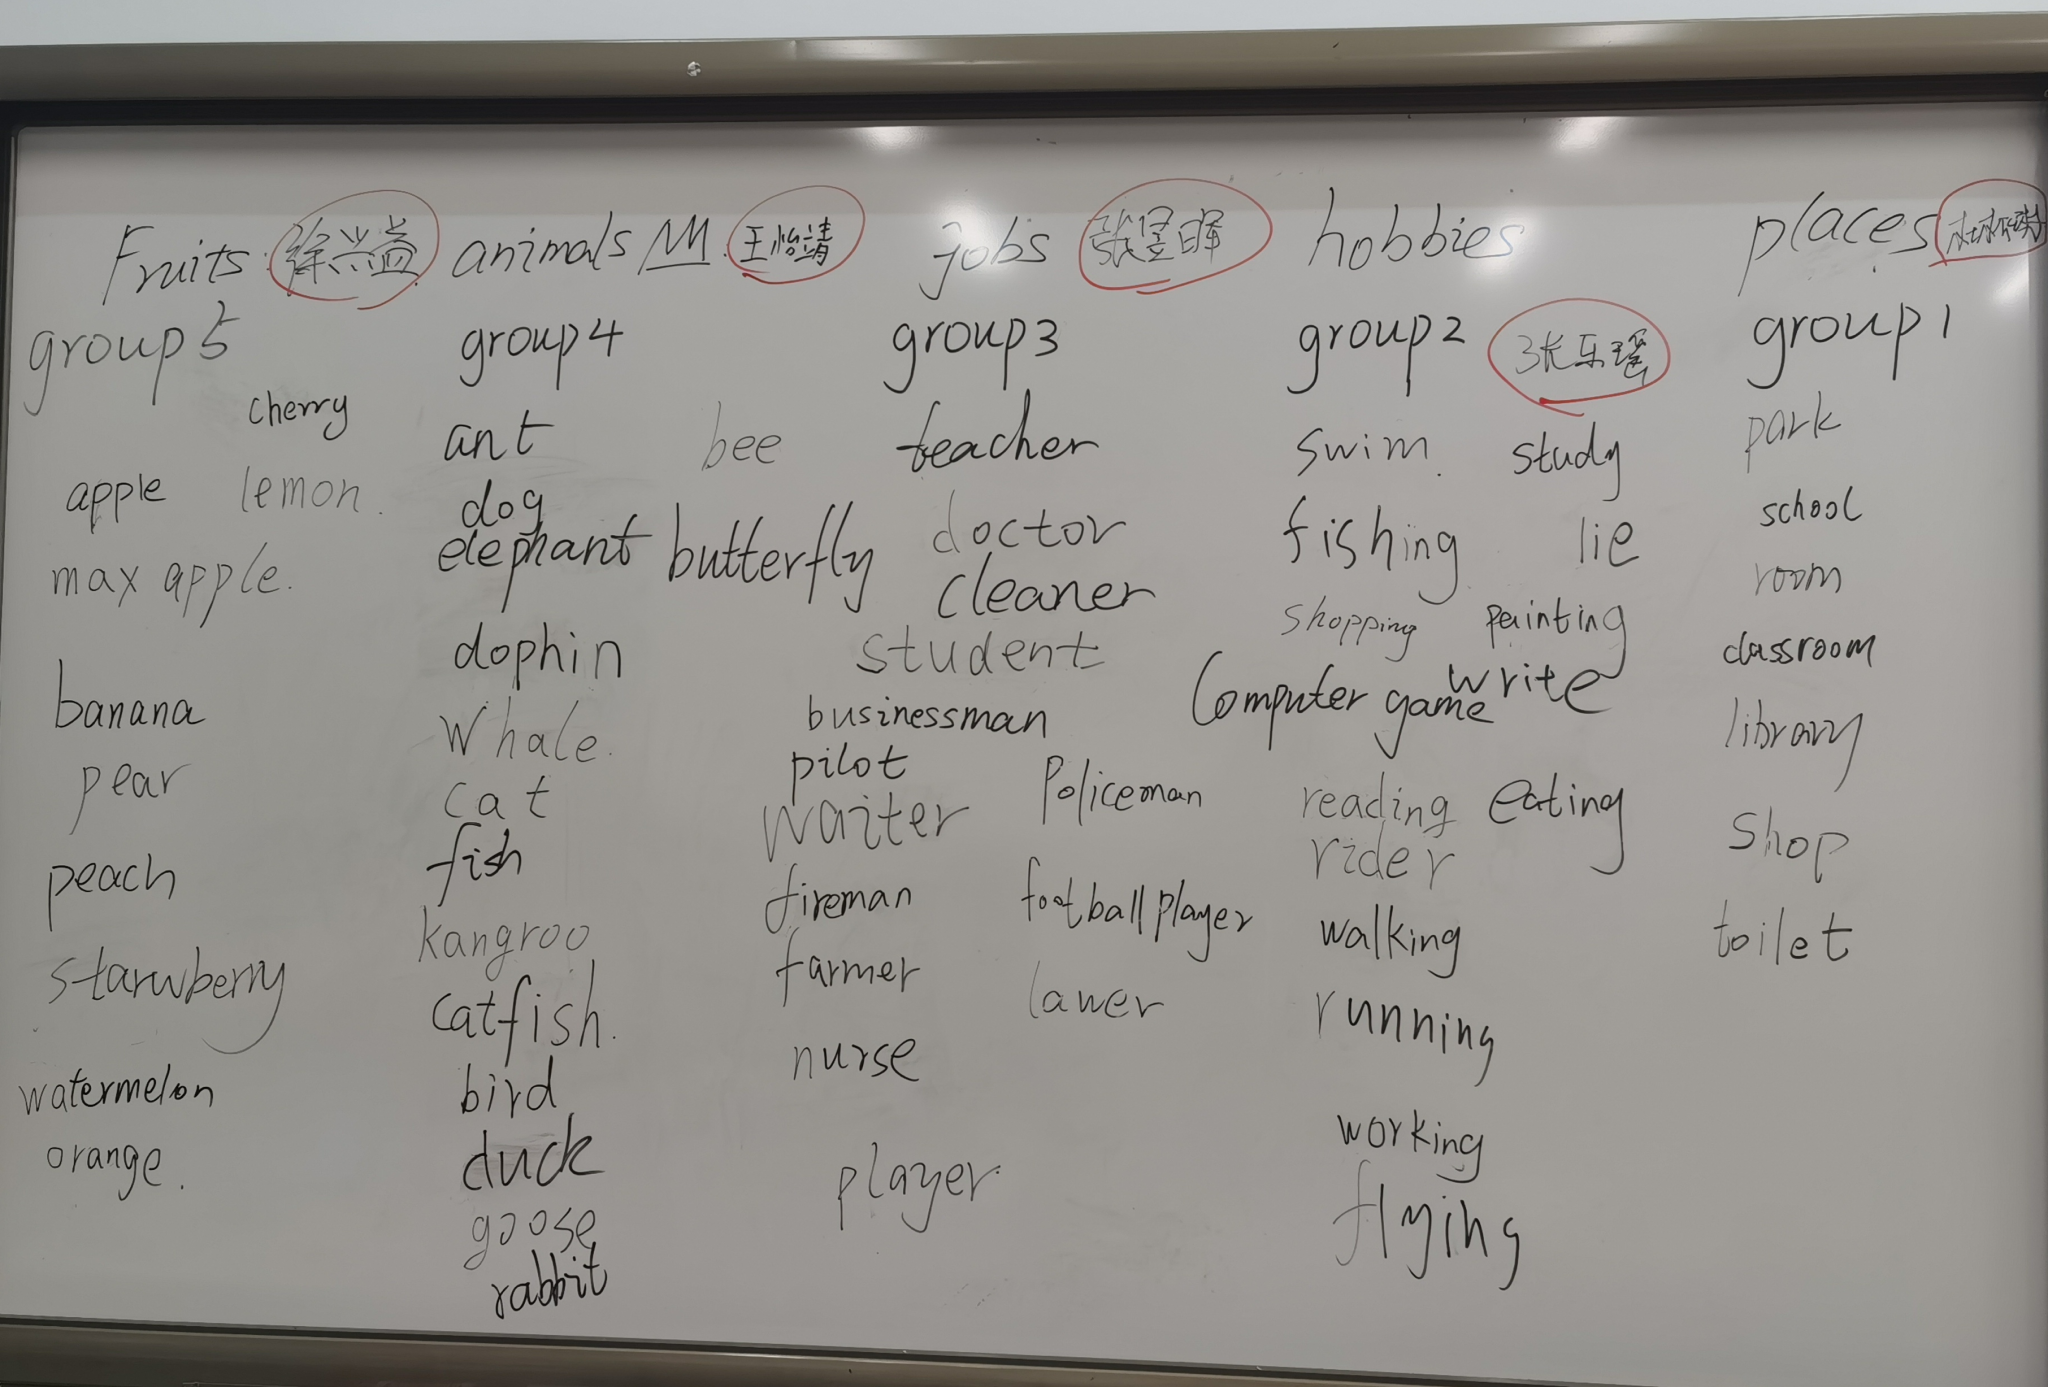 Fruits 徐兴益 animals 王怡靖 jobs 张昱晖 hobbies places
group5 group4 group3 group2 张乐瑶 group1
cherry
apple lemon.
max apple.
banana
pear
peach
starwberry
watermelon
orange.
ant bee
dog
elephant butterfly
dophin
whale.
cat
fish
kangroo
catfish.
bird
duck
goose
rabbit
teacher
doctor
cleaner
student
businessman
pilot
waiter policeman
fireman football player
farmer lawer
nurse
player
swim. study
fishing lie
shopping painting
Computer game write
reading eating
rider
walking
running
working
flying
park
school
room
classroom
library
shop
toilet